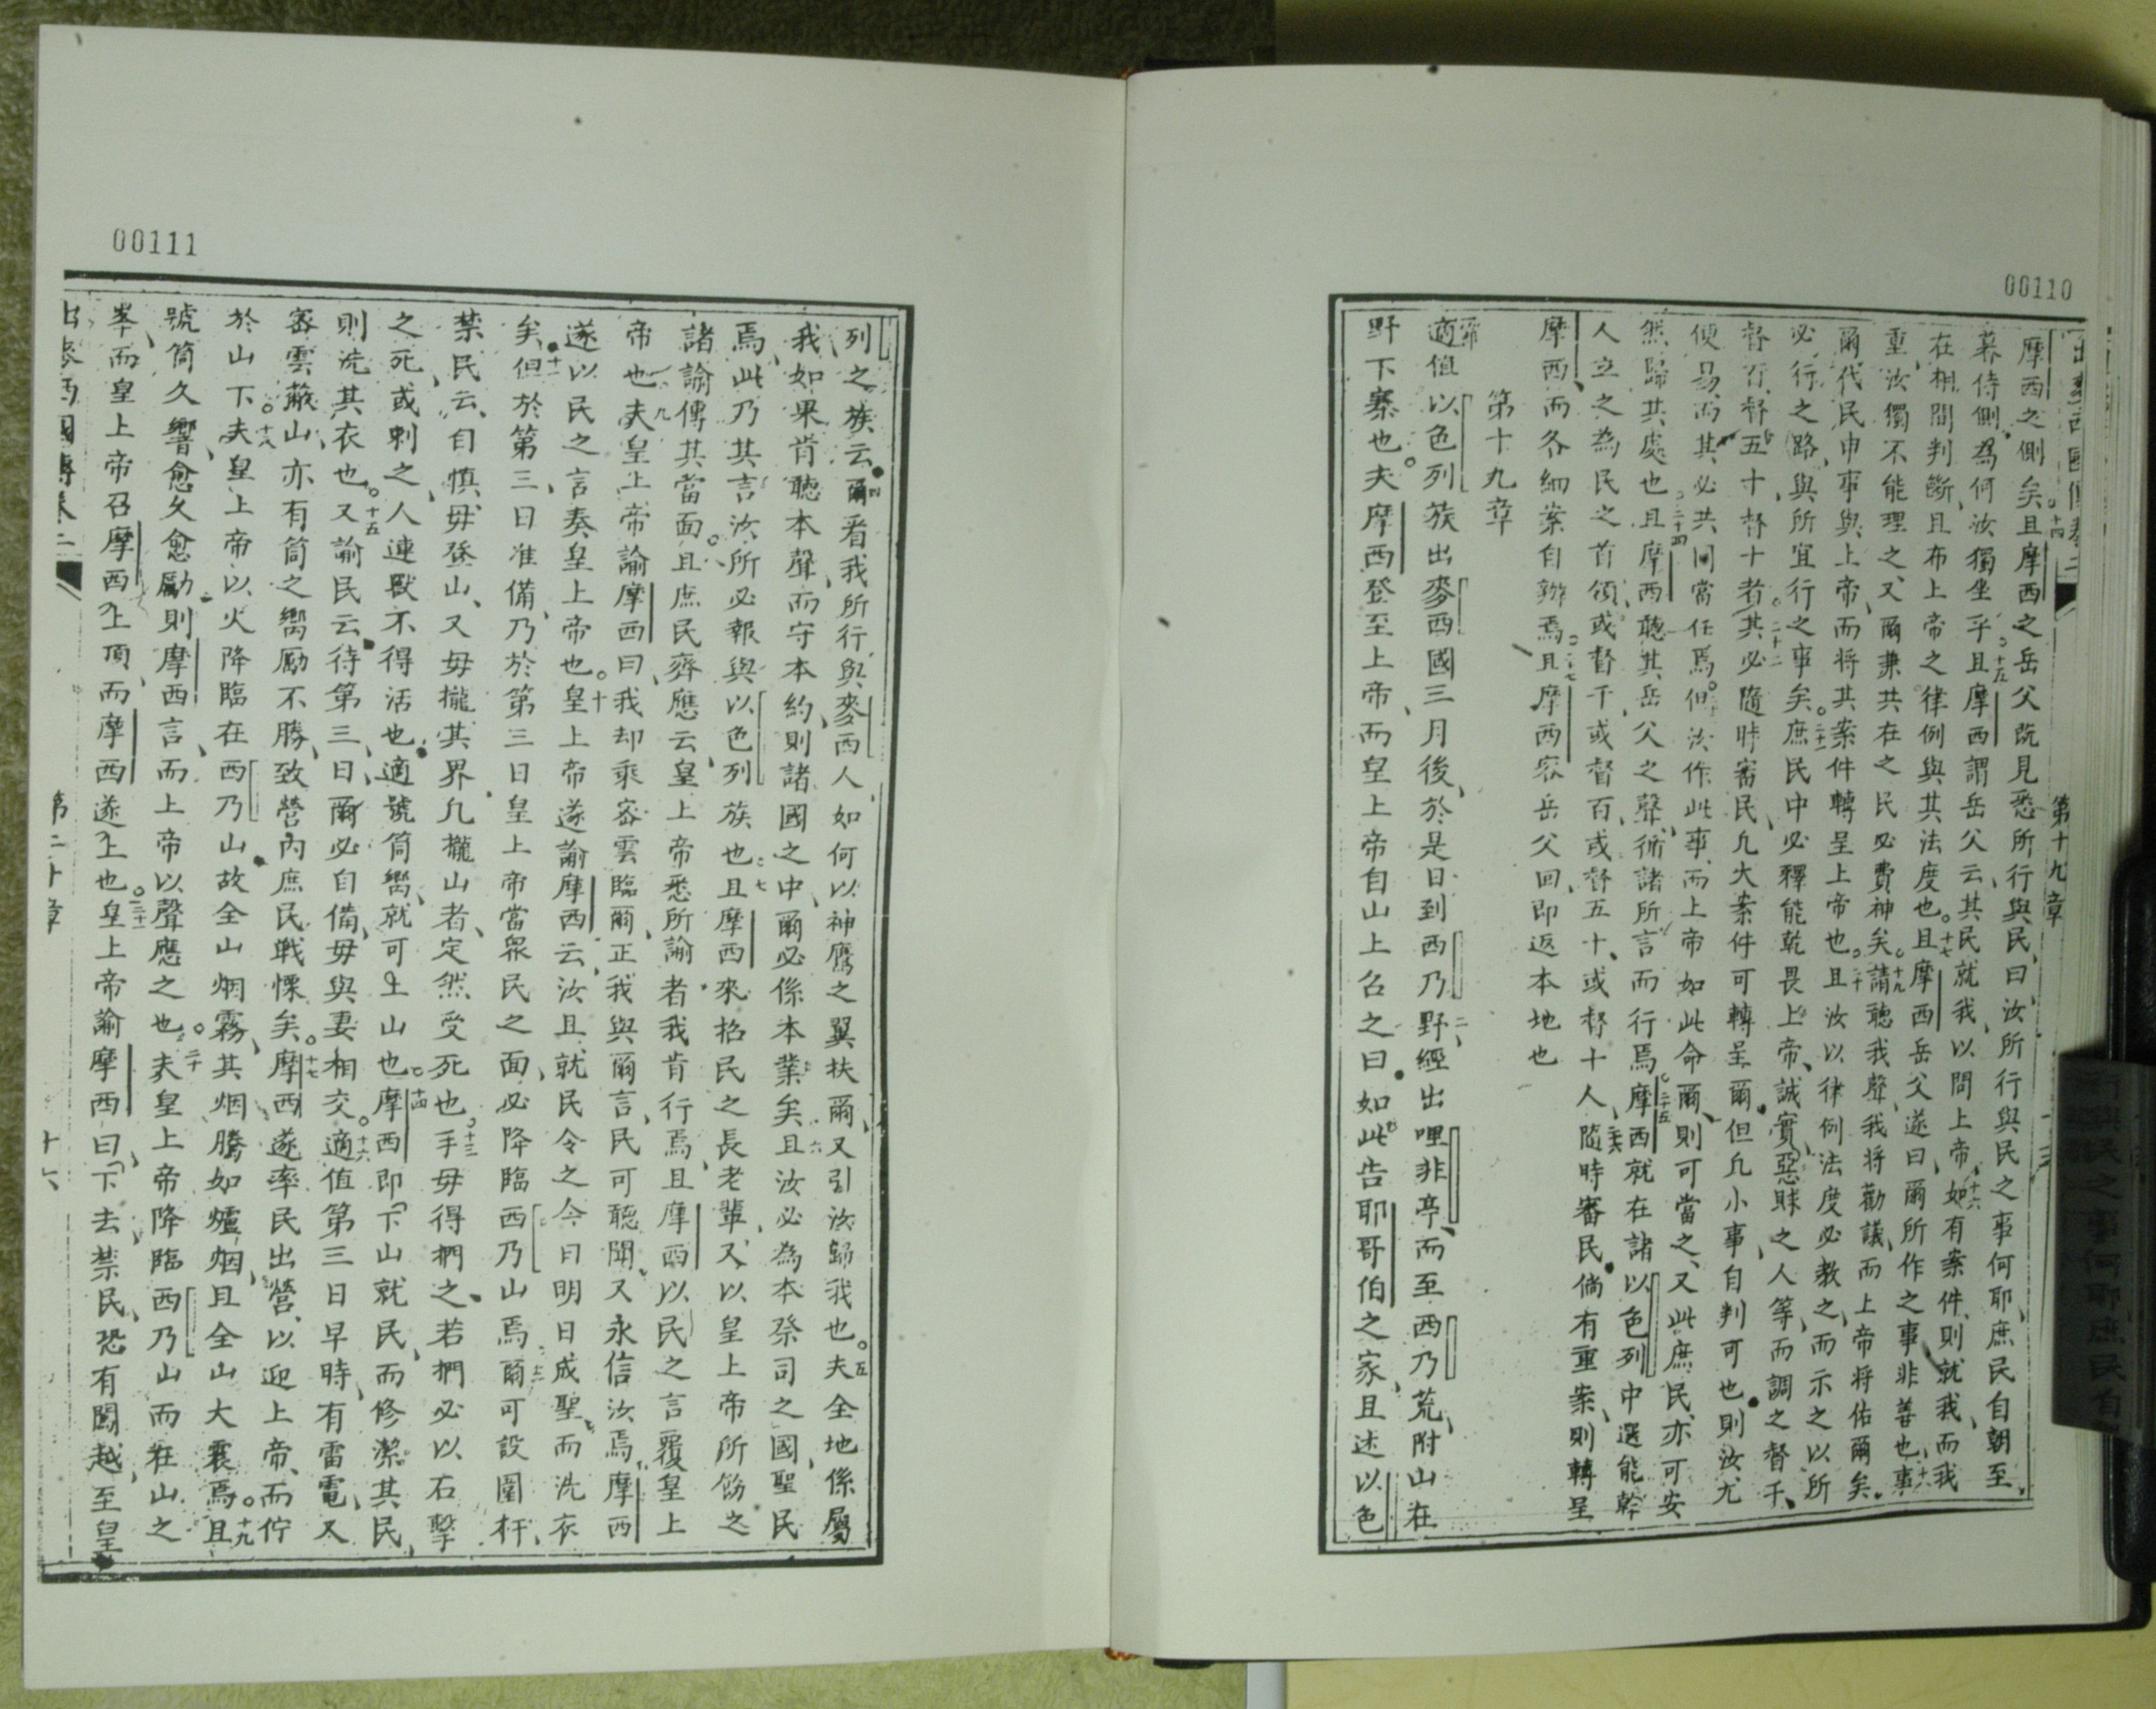 00110
第十九章
摩西之側矣且摩西之岳父既見悉所行與民曰汝所行與民之事何耶庶民自朝至
暮侍側為何汝獨坐乎且摩西謂岳父云其民就我以問上帝如有案件則就我而我
在相間判斷且布上帝之律例與其法度也且摩西岳父遂曰爾所作之事非善也事
重汝獨不能理之又爾兼共在之民必費神矣請聽我聲我將勸議而上帝將佑爾矣
爾代民申事與上帝而將其案件轉呈上帝也且汝以律例法度必教之而示之以所
必行之路與所宜行之事矣庶民中必擇能乾畏上帝誠實惡賕之人等而調之督千
督百督五十督十者其必隨時審民凡大案件可轉呈爾但凡小事自判可也則汝尤
便易而其必共同當任焉但汝作此事而上帝如此命爾則可當之又此庶民亦可安
然歸其處也且摩西聽其岳父之聲循諸所言而行焉摩西就在諸以色列中選能幹
人立之為民之首領或督千或督百或督五十或督十人隨時審民倘有重案則轉呈
摩西而各細案自辦焉且摩西容岳父回即返本地也
第十九章
適值以色列族出麥西國三月後於是日到西乃野經出哩非亭而至西乃荒附山在
野下寨也夫摩西登至上帝而皇上帝自山上召之曰如此告耶哥伯之家且述以色
00111
列之族云爾看我所行與麥西人如何以神鷹之翼扶爾又引汝歸我也夫全地係屬
我如果肯聽本聲而守本約則諸國之中爾必係本業矣且汝必為本祭司之國聖民
焉此乃其言汝所必報與以色列族也且摩西來招民之長老輩又以皇上帝所飭之
諸諭傳其當面且庶民齊應云皇上帝悉所諭者我肯行焉且摩西以民之言覆皇上
帝也夫皇上帝諭摩西曰我却乘密雲臨爾正我與爾言民可聽聞又永信汝焉摩西
遂以民之言奏皇上帝也皇上帝遂諭摩西云汝且就民令之今日明日成聖而洗衣
矣但於第三日准備乃於第三日皇上帝當眾民之面必降臨西乃山焉爾可設圍杆
禁民云自慎毋登山又毋攏其界凡攏山者定然受死也手毋得捫之若捫必以石擊
之死或刺之人連獸不得活也適號筒嚮就可上山也摩西即下山就民而修潔其民
則洗其衣也又諭民云待第三日爾必自備毋與妻相交適值第三日早時有雷電又
密雲蔽山亦有筒之嚮勵不勝致營內庶民戰慄矣摩西遂率民出營以迎上帝而佇
於山下夫皇上帝以火降臨在西乃山故全山烟霧其烟騰如爐烟且全山大震焉且
號筒久響愈久愈勵則摩西言而上帝以聲應之也夫皇上帝降臨西乃山而在山之
峯而皇上帝召摩西上頂而摩西遂上也皇上帝諭摩西曰下去禁民恐有闖越至皇
出麥西國傳卷二 第二十章 十六